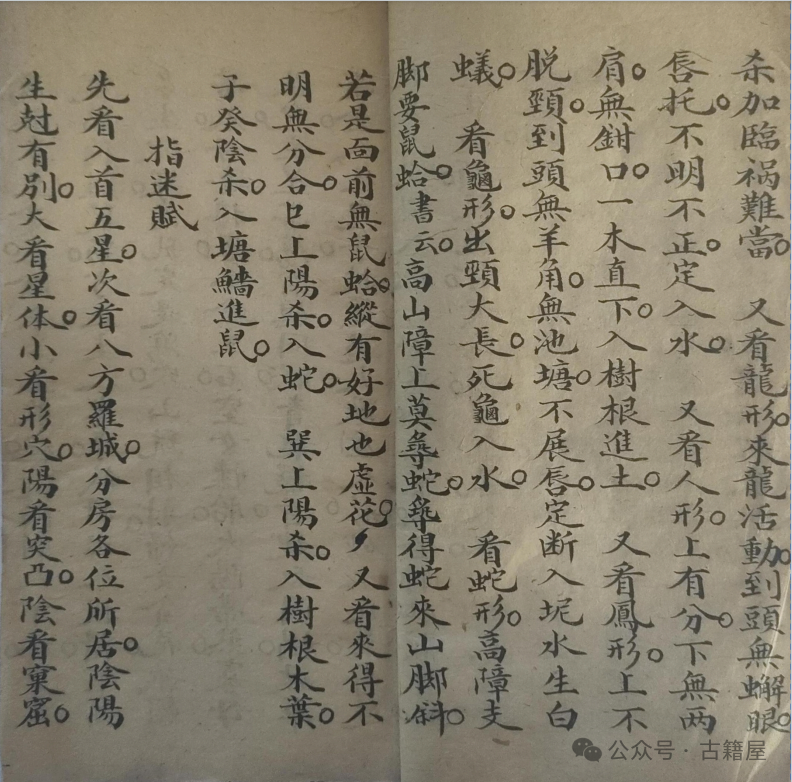 杀加臨禍難當。 又看龍形。來龍活動。到頭無蠏眼。
唇托。不明不正。定入水。 又看人形。上有分。下無两
肩。無鉗口。一木直下。入樹根進土。 又看鳳形。上不
脱頸。到頭無羊角。無池塘。不展唇。定断入坭水生白
蟻。 看龜形。出頸大長。死龜入水。 看蛇形。高障支
脚要鼠蛤。書云。高山障上莫尋蛇。尋得蛇來山脚斜。
若是面前無鼠蛤。縱有好地也虛花。又看來得不
明無分合。巳上陽杀。入蛇。 巽上陽杀。入樹根木葉。
子癸陰杀。入塘鱔進鼠。
指迷賦
先看入首五星。次看八方羅城。分房各位所居。陰陽
生尅有别。大看星体。小看形穴。陽看突凸。陰看窠窟。
公众号·古籍屋